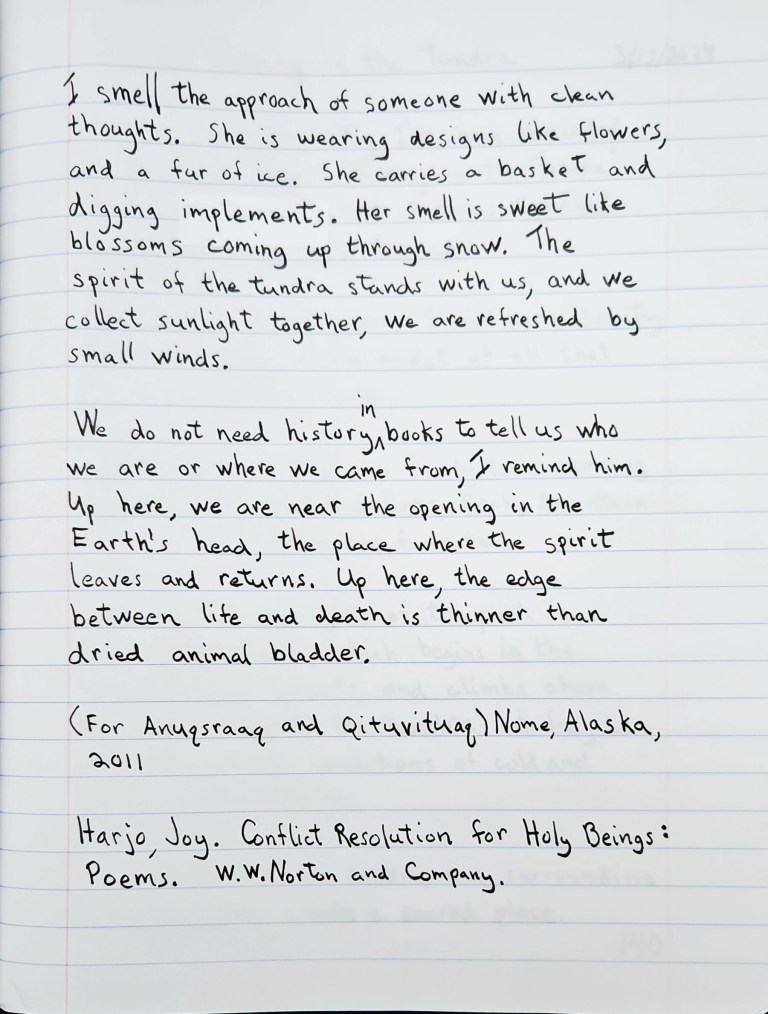 I smell the approach of someone with clean
thoughts. She is wearing designs like flowers,
and a fur of ice. She carries a basket and
digging implements. Her smell is sweet like
blossoms coming up through snow. The
spirit of the tundra stands with us, and we
collect sunlight together, we are refreshed by
small winds.
We do not need history in books to tell us who
we are or where we came from, I remind him.
Up here, we are near the opening in the
Earth's head, the place where the spirit
leaves and returns. Up here, the edge
between life and death is thinner than
dried animal bladder.
(For Anuqsraaq and Qituvituaq) Nome, Alaska,
2011
Harjo, Joy. Conflict Resolution for Holy Beings:
Poems. W.W. Norton and Company.